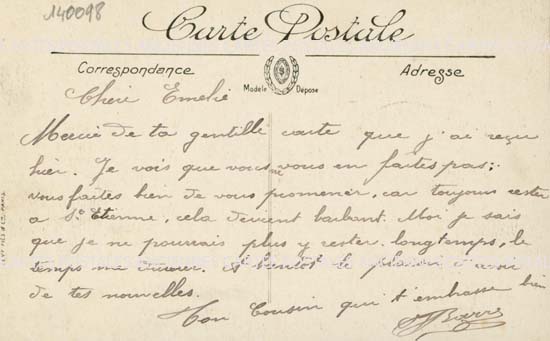 140098
Carte Postale
Correspondance
Modèle Déposé
Adresse
Cheri Emelie
de ta gentille carte que j'ai reçu
hier. Je vois que vous ne vous en faites pas;
vous faites bien de vous promener, car toujours rester
a St Etienne, cela devient barbant. Moi je sais
que je ne pourrais plus y rester longtemps, le
temps me A bientôt le plaisir d'avoir
de tes nouvelles.
Ton Cousin qui t'embrasse bien